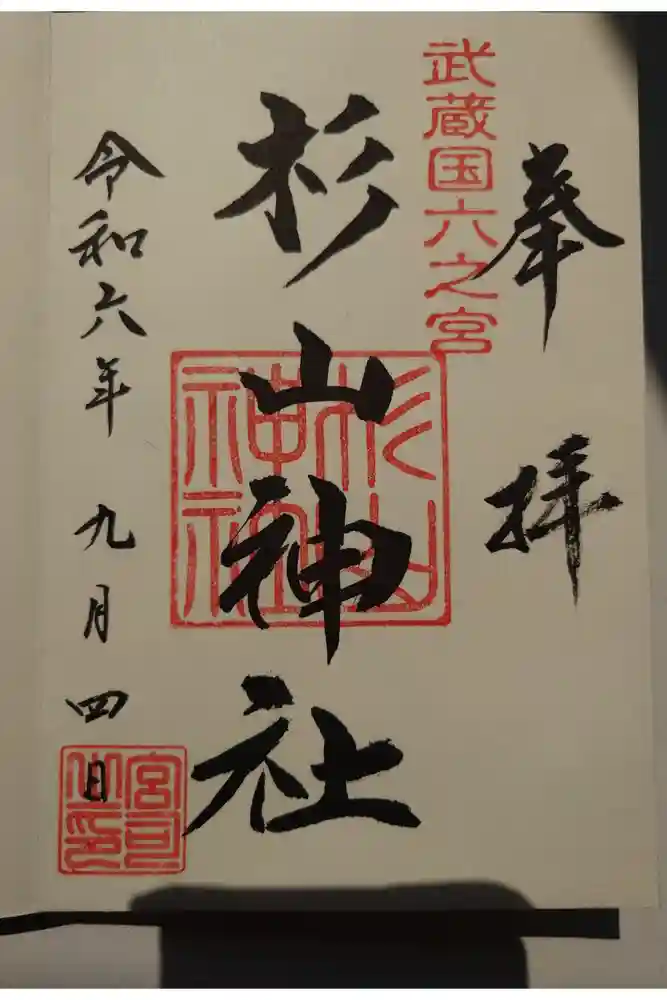 奉拝
武蔵国六之宮
杉山神社
杉山
神社
令和六年 九月四日
宮司
之印